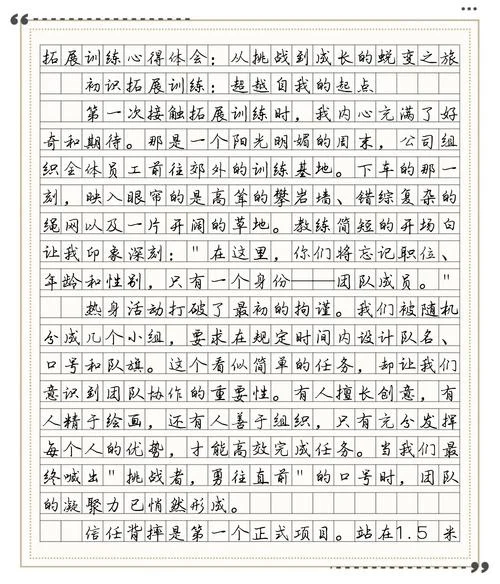 拓展训练心得体会：从挑战到成长的蜕变之旅
初识拓展训练：超越自我的起点
第一次接触拓展训练时，我内心充满了好
奇和期待。那是一个阳光明媚的周末，公司组
织全体员工前往郊外的训练基地。下车的那一
刻，映入眼帘的是高耸的攀岩墙、错综复杂的
绳网以及一片开阔的草地。教练简短的开场白
让我印象深刻："在这里，你们将忘记职位、
年龄和性别，只有一个身份——团队成员。"
热身活动打破了最初的拘谨。我们被随机
分成几个小组，要求在规定时间内设计队名、
口号和队旗。这个看似简单的任务，却让我们
意识到团队协作的重要性。有人擅长创意，有
人精于绘画，还有人善于组织，只有充分发挥
每个人的优势，才能高效完成任务。当我们最
终喊出"挑战者，勇往直前"的口号时，团队
的凝聚力已悄然形成。
信任背摔是第一个正式项目。站在1.5 米